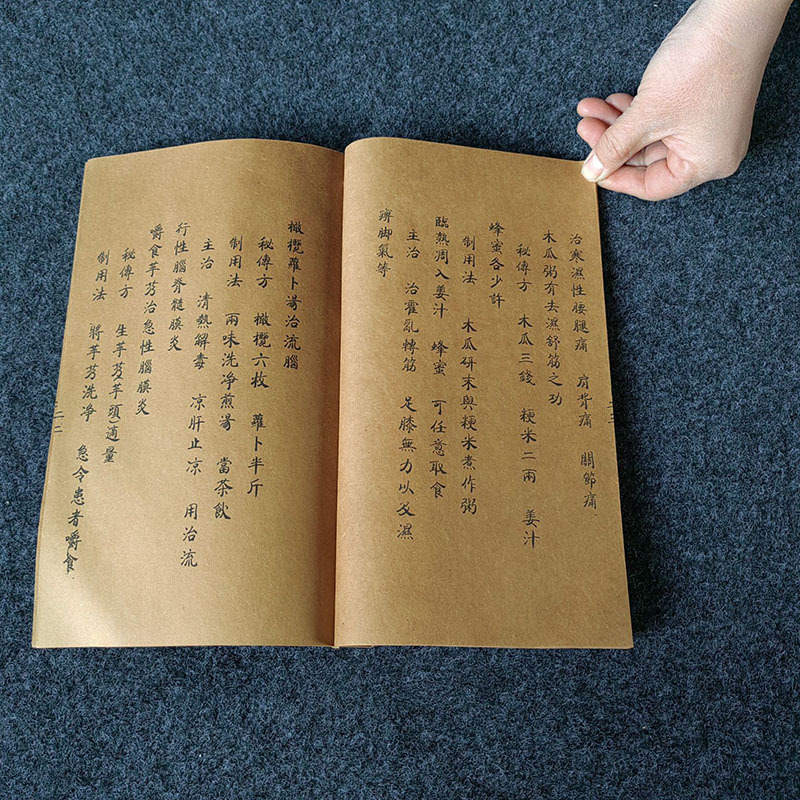 治寒濕性腰腿痛 肩背痛 關節痛
木瓜粥有去濕舒筋之功
秘傳方 木瓜三錢 粳米二兩 姜汁
蜂蜜各少許
制用法 木瓜研末與粳米煮作粥
臨熟凋入姜汁 蜂蜜 可任意取食
主治 治霍亂轉筋 足膝無力以及濕
痹脚氣等
橄欖蘿卜湯治流腦
秘傳方 橄欖六枚 蘿卜半斤
制用法 兩味洗净煎湯 當茶飲
主治 清熱解毒 凉肝止凉 用治流
行性腦脊髓膜炎
嚼食芋艿治急性腦膜炎
秘傳方 生芋芨(芋頭)適量
制用法 將芋艿洗净 急令患者嚼食
二二